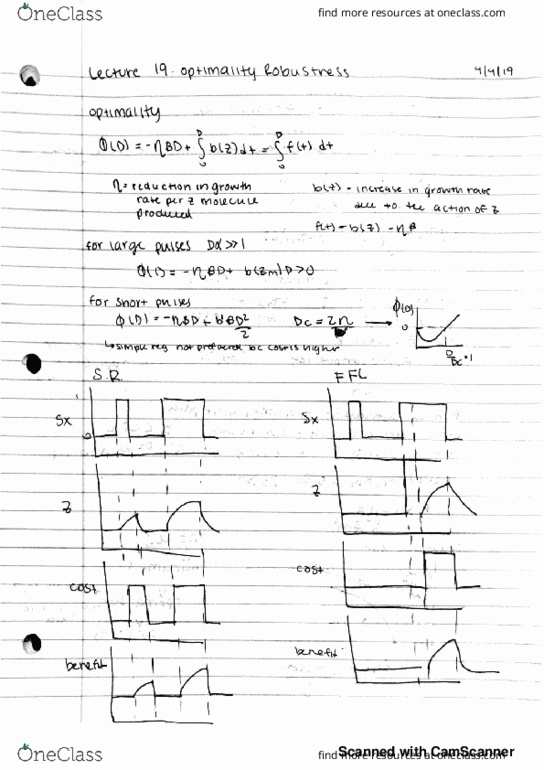 OneClass
find more resources at oneclass.com
Lecture 19. Optimality Robustness 4/4/19
optimality
Φ(D) = -ηBD + ∫₀ᴰ b(z)dt = ∫₀ᴰ f(t) dt
η = reduction in growth
rate per z molecule
produced
b(t) - increase in growth rate
due to the action of z
f(t) = b(z) - ηβ
for large pulses Dα >> 1
Φ(D) = -ηBD + b(Zm)D > 0
for short pulses
Φ(D) = -ηBD + b'BD²/2 Dc = 2η → Φ(D)
0
D/Dc = 1
↳ simple reg not preferred bc cost is higher
S.R. FFL
Sx Sx
0
Z Z
cost cost
benefit benefit
OneClass
find more resources at oneclass.com
Scanned with CamScanner